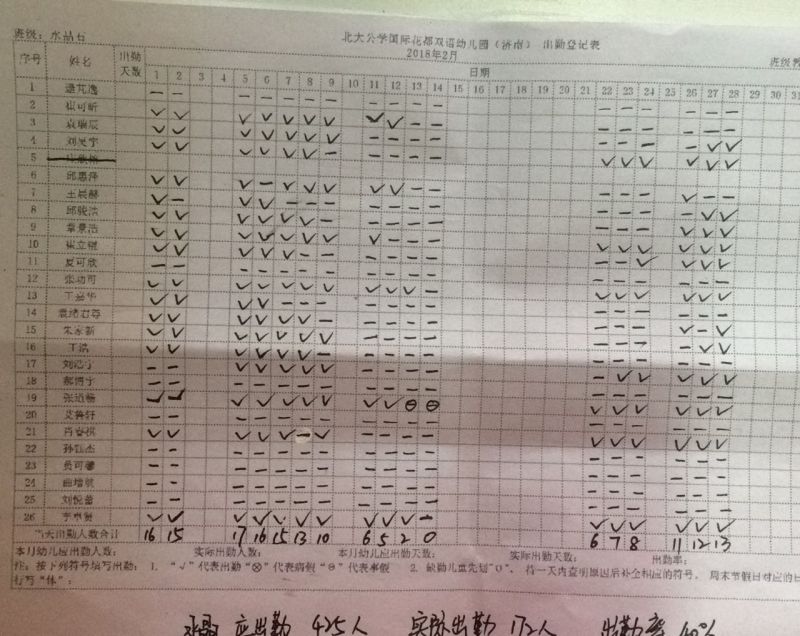 班级：水晶石
北大公学国际花都双语幼儿园（济南） 出勤登记表
2018年2月
序号 姓名 出勤天数 日期
1 2 3 4 5 6 7 8 9 10 11 12 13 14 15 16 17 18 19 20 21 22 23 24 25 26 27 28
1 — — — — — — — — — — — — — — — — —
2 崔可昕
3 袁瑞辰
4 刘昊宇
5
6 邱惠泽
7 王晨赫
8 邱骏浩
9 章景浩
10 崔立锟
11 夏可欣
12 张幼可
13 王嘉华
14
15 朱家新
16 王浩
17 刘浩宇
18 郝博宇
19 张道杨
20 艾鲁轩
21 肖睿祺
22 孙钰杰
23 员可馨
24 曲增航
25 刘悦蕾
26 李卓贤
当天出勤人数合计 16 15 17 16 15 13 10 6 5 2 0 6 7 8 11 12 13
本月幼儿应出勤人数： 实际出勤人数： 本月幼儿应出勤天数： 实际出勤天数： 出勤率：
注：按下列符号填写出勤： 1. “√”代表出勤“⊗”代表病假“⊖”代表事假 2. 缺勤儿童先划“○”，待一天内查明原因后补全相应的符号，周末节假日对应的
行写“体”；
水晶 应出勤 425人 实际出勤 172人 出勤率 40%